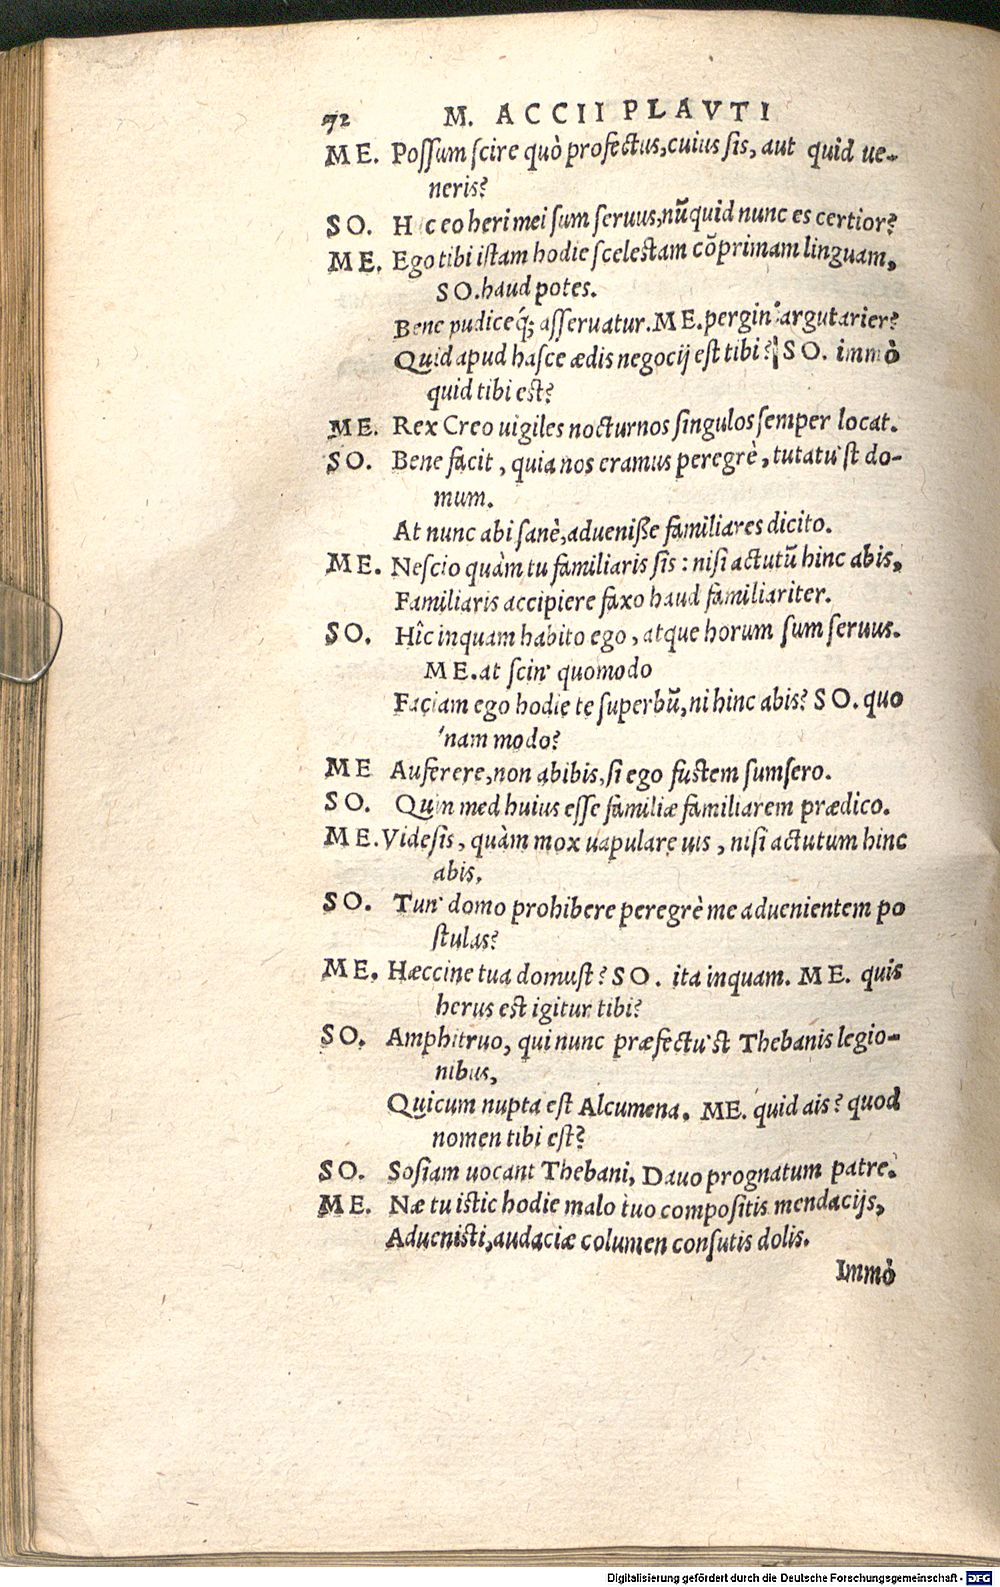 72 M. ACCII PLAVTI
ME. Poſſum ſcire quò profectus, cuius ſis, aut quid ue-
neris?
SO. H c eo heri mei ſum ſeruus, nũquid nunc es certior?
ME. Ego tibi iſtam hodie ſceleſtam cõprimam linguam,
SO. haud potes.
Bene pudiceq́; aſſeruatur. ME. pergin' argutarier?
Quid apud haſce ædis negocij eſt tibi? SO. immò
quid tibi eſt?
ME. Rex Creo uigiles nocturnos ſingulos ſemper locat.
SO. Bene facit, quia nos eramus peregrè, tutatu'ſt do-
mum.
At nunc abi ſanè, adueniſſe familiares dicito.
ME. Neſcio quàm tu familiaris ſis: niſi actutũ hinc abis,
Familiaris accipiere faxo haud familiariter.
SO. Hîc inquam habito ego, atque horum ſum ſeruus.
ME. at ſcin' quomodo
Faciam ego hodie te ſuperbũ, ni hinc abis? SO. quo
'nam modo?
ME Auferere, non abibis, ſi ego fuſtem ſumſero.
SO. Quin med huius eſſe familiæ familiarem prædico.
ME. Videſis, quàm mox uapulare uis, niſi actutum hinc
abis.
SO. Tun' domo prohibere peregrè me aduenientem po
ſtulas?
ME. Hæccine tua domuſt? SO. ita inquam. ME. quis
herus eſt igitur tibi?
SO. Amphitruo, qui nunc præfectu'ſt Thebanis legio-
nibus,
Quicum nupta eſt Alcumena. ME. quid ais? quod
nomen tibi eſt?
SO. Soſiam uocant Thebani, Dauo prognatum patre.
ME. Næ tu iſtic hodie malo tuo compoſitis mendacijs,
Adueniſti, audaciæ columen conſutis dolis.
Immò
Digitalisierung gefördert durch die Deutsche Forschungsgemeinschaft - DFG